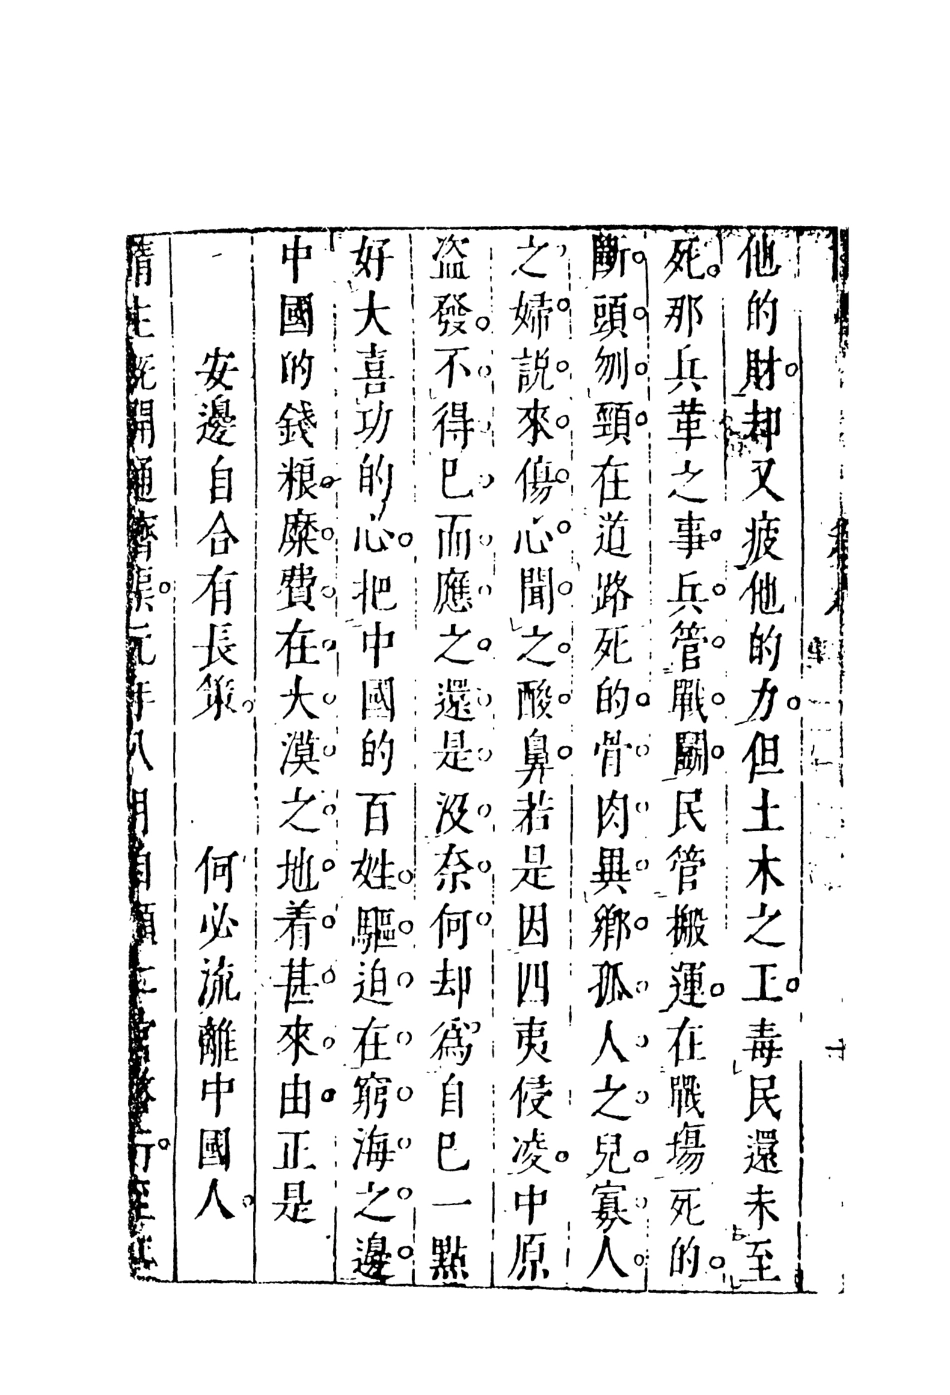 他的財。却又疲他的力。但土木之工。毒民還未至
死。那兵革之事。兵管戰鬬。民管搬運。在戰塲死的。
斷頭刎頸。在道路死的。骨肉異鄉。孤人之兒。寡人
之婦。説來傷心。聞之酸鼻。若是因四夷侵凌。中原
盜發。不得已而應之。還是沒奈何。却爲自已一點
好大喜功的心。把中國的百姓。驅迫在窮海之邊。
中國的錢粮。糜費在大漠之地。着甚來由。正是
安邊自合有長策。 何必流離中國人。
隋主既開通濟渠。元年八月自顯仁宮